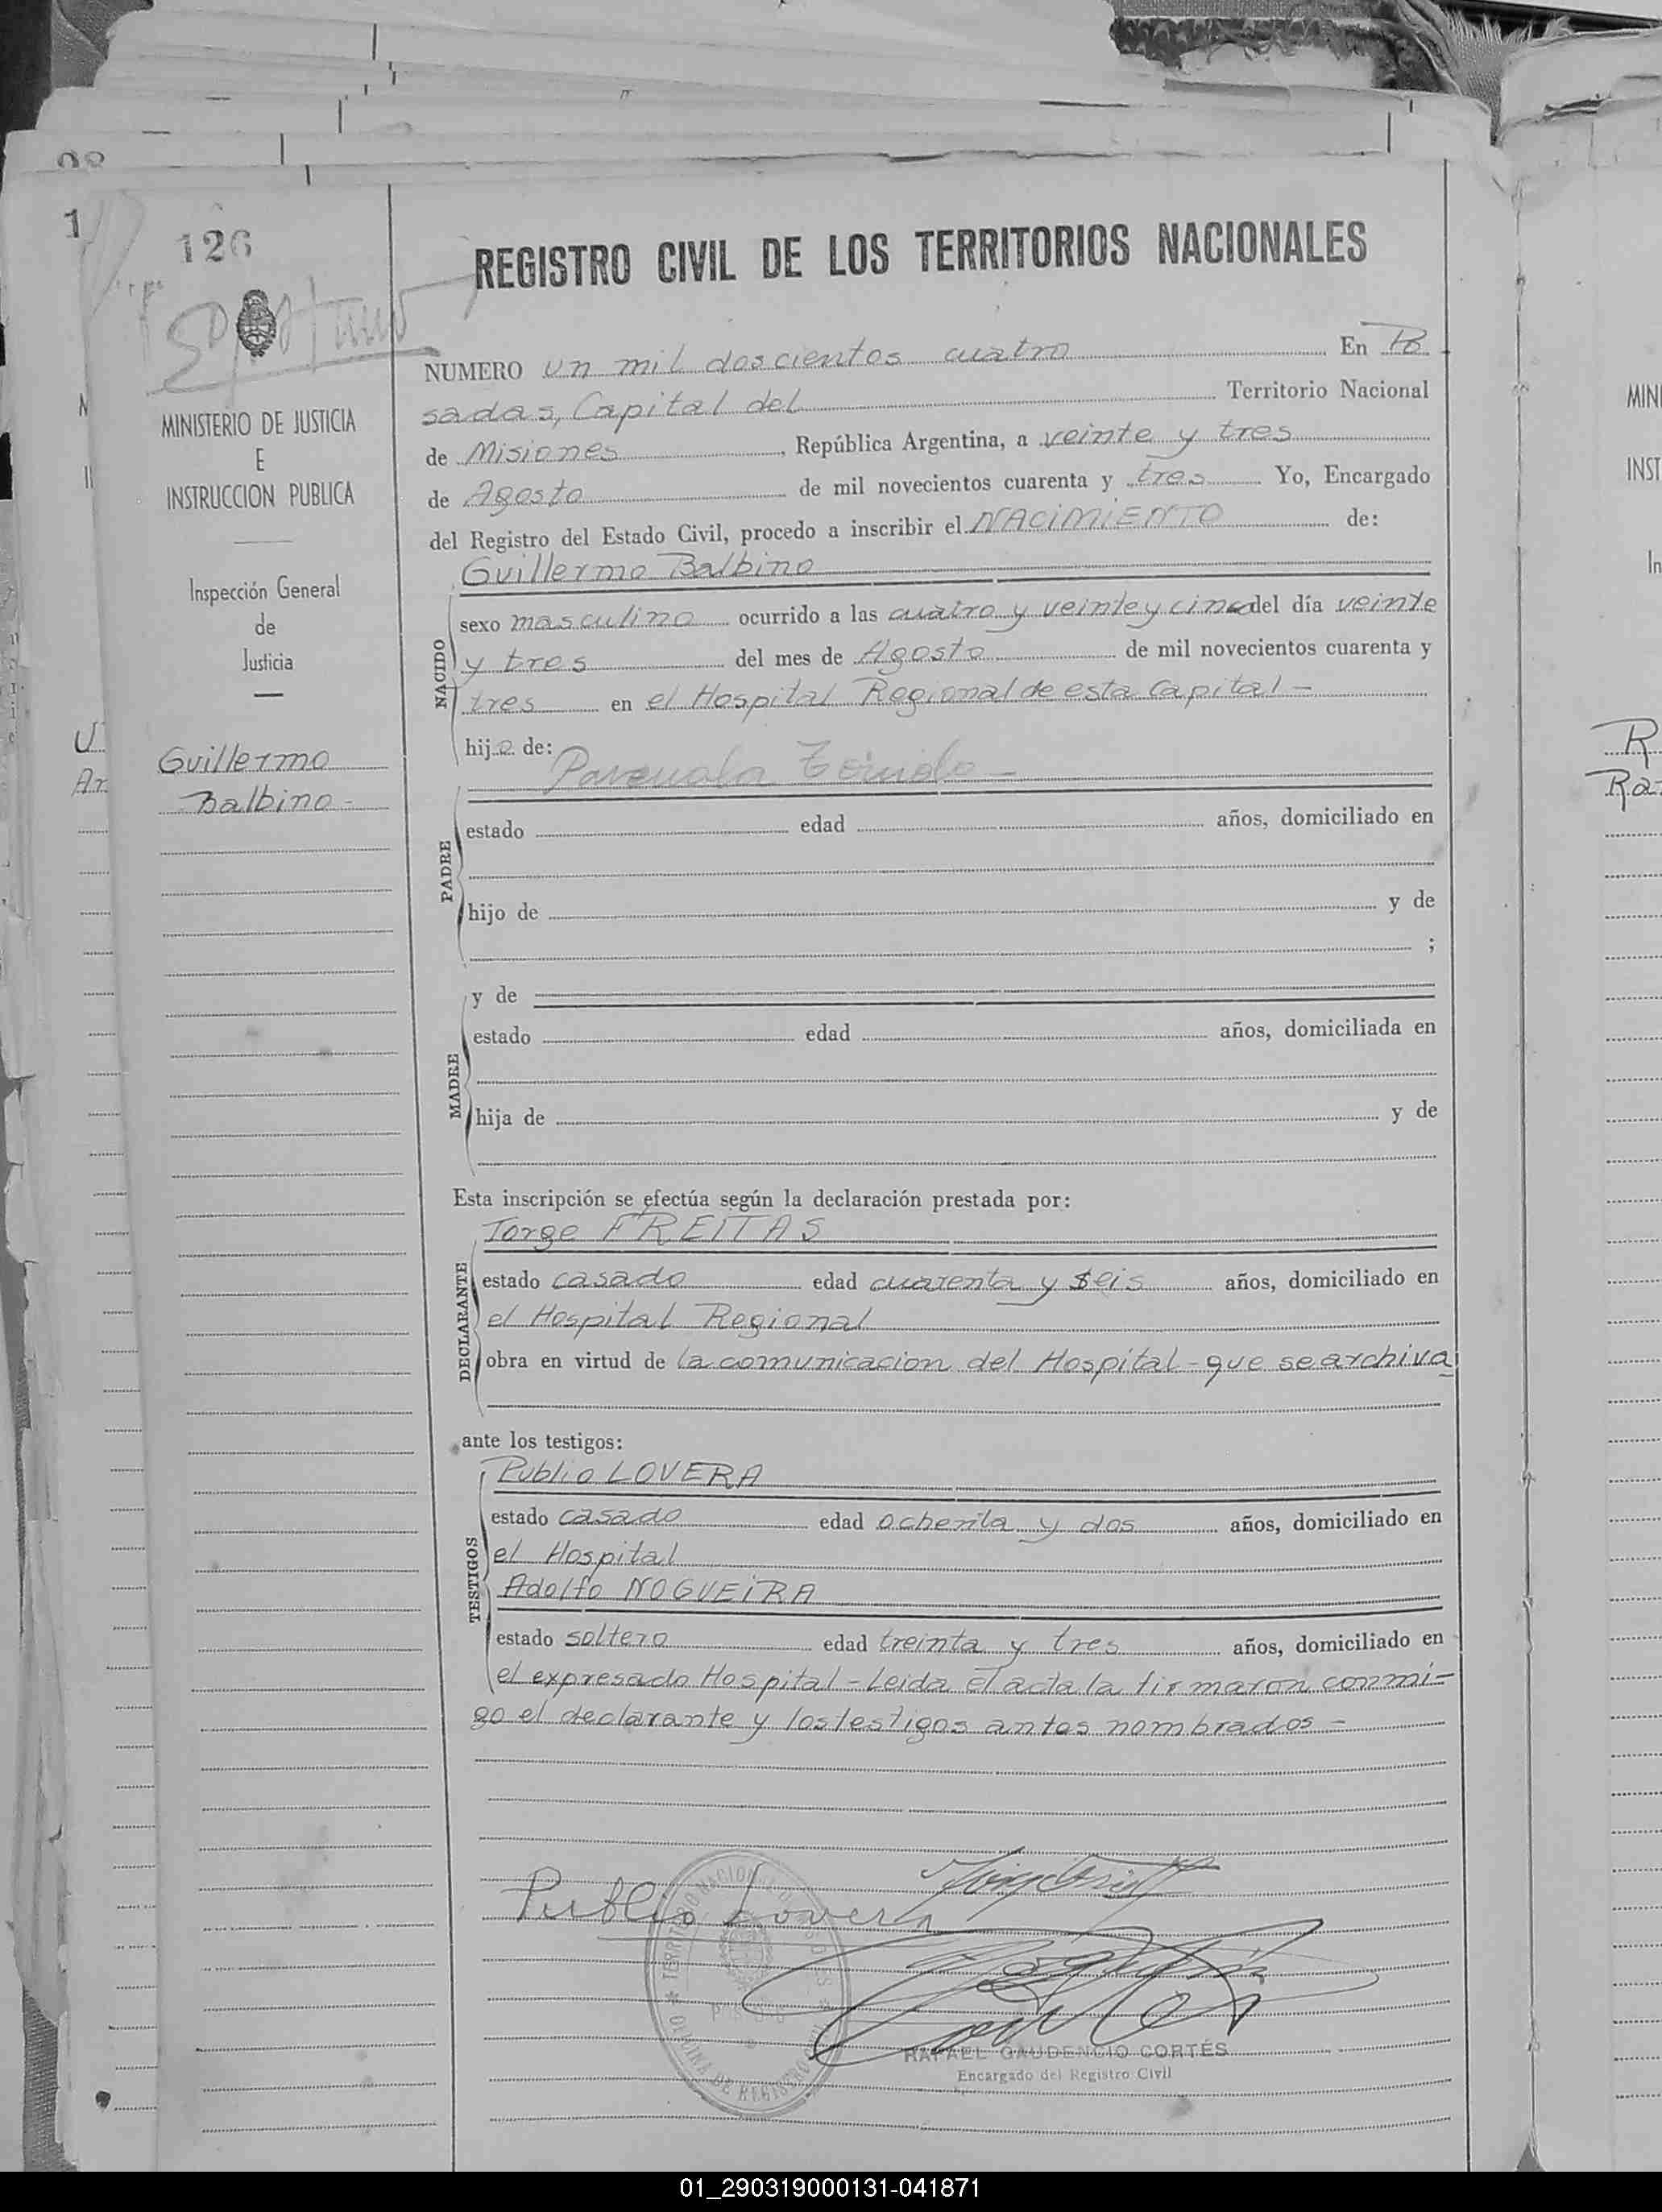 98
1
126
REGISTRO CIVIL DE LOS TERRITORIOS NACIONALES
MINISTERIO DE JUSTICIA
E
INSTRUCCION PUBLICA
Inspección General
de
Justicia
Guillermo
Balbino -
NUMERO un mil doscientos cuatro En Po
sadas, Capital del Territorio Nacional
de Misiones, República Argentina, a veinte y tres
de Agosto de mil novecientos cuarenta y tres Yo, Encargado
del Registro del Estado Civil, procedo a inscribir el NACIMIENTO de:
Guillermo Balbino
NACIDO
sexo masculino ocurrido a las cuatro y veinte y cinco del día veinte
y tres del mes de Agosto de mil novecientos cuarenta y
tres en el Hospital Regional de esta Capital -
hijo de:
PADRE
estado edad años, domiciliado en
hijo de y de
;
y de
MADRE
estado edad años, domiciliada en
hija de y de
Esta inscripción se efectúa según la declaración prestada por:
Jorge FREITAS
DECLARANTE
estado casado edad cuarenta y seis años, domiciliado en
el Hospital Regional
obra en virtud de la comunicacion del Hospital - que se archiva
ante los testigos:
Publio LOVERA
TESTIGOS
estado casado edad ochenta y dos años, domiciliado en
el Hospital
Adolfo NOGUEIRA
estado soltero edad treinta y tres años, domiciliado en
el expresado Hospital - Leida el acta la firmaron conmi-
go el declarante y los testigos antes nombrados -
Publio Lovera
RAFAEL GAUDENCIO CORTÉS
Encargado del Registro Civil
OFICINA DE REGISTRO CIVIL
MINI
INST
In
R
Ra
U
Ar
01_290319000131-041871